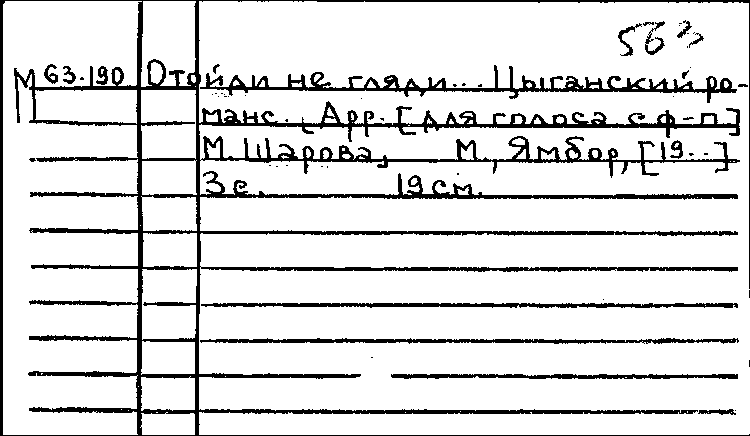 563
М 63-190 Отойди не гляди... Цыганский ро-
П манс. Арр. [для голоса с ф-п]
М. Шарова, М., Ямбор, [19..]
3 с. 19 см.